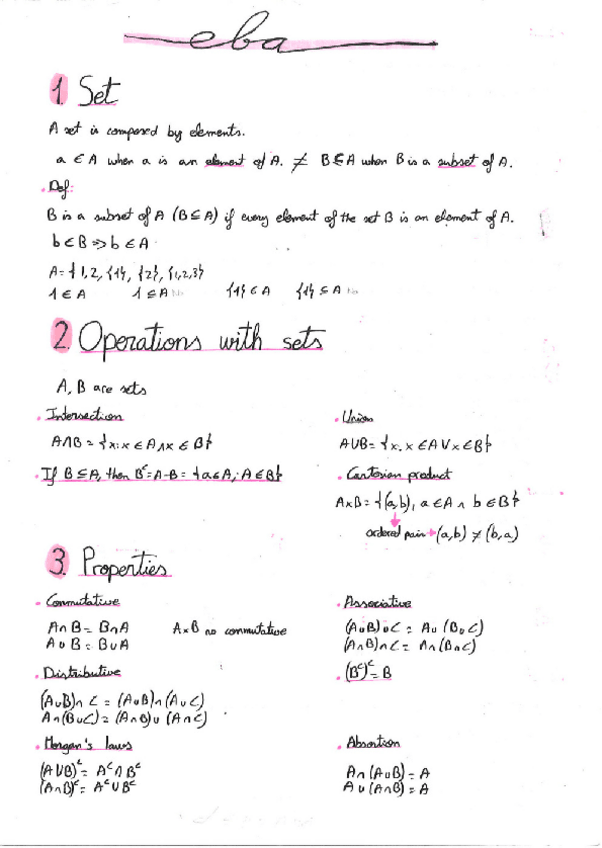 eba
1. Set
A set is composed by elements.
a ∈ A when a is an element of A. ≠ B ⊆ A when B is a subset of A.
· Def:
B is a subset of A (B ⊆ A) if every element of the set B is an element of A.
b ∈ B => b ∈ A
A = {1, 2, {1}, {2}, {1,2,3}}
1 ∈ A 1 ⊆ A No {1} ∈ A {1} ⊆ A No
2. Operations with sets
A, B are sets
· Intersection
A∩B = {x: x ∈ A ∧ x ∈ B}
· If B ⊆ A, then Bᶜ = A-B = {a∈A; A∈B}
· Union
A∪B = {x. x ∈ A ∨ x ∈ B}
· Cartesian product
A×B = {(a,b), a ∈ A ∧ b ∈ B}
ordered pair → (a,b) ≠ (b,a)
3. Properties
· Commutative
A∩B = B∩A A×B no commutative
A∪B = B∪A
· Associative
(A∪B)∪C = A∪(B∪C)
(A∩B)∩C = A∩(B∩C)
· Distributive
(A∪B)∩C = (A∪B)∩(A∪C)
A∩(B∪C) = (A∩B)∪(A∩C)
· (Bᶜ)ᶜ = B
· Morgan's laws
(A∪B)ᶜ = Aᶜ∩Bᶜ
(A∩B)ᶜ = Aᶜ∪Bᶜ
· Absortion
A∩(A∪B) = A
A∪(A∩B) = A